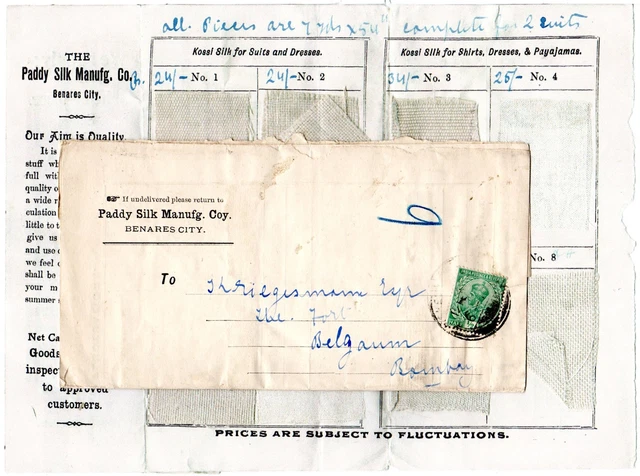 all Pieces are 7 yds x 54" complete for 2 suits
THE
Paddy Silk Manufg. Co.
Benares City.
Our Aim is Quality.
It is
stuff wh
full wit
quality o
a wide r
culation
little to t
give us
and use o
we feel c
shall be
your m
summer s
Net Ca
Goods
inspec
to approved
customers.
Kossi Silk for Suits and Dresses.
24/- No. 1
24/- No. 2
Kossi Silk for Shirts, Dresses, & Payajamas.
34/- No. 3
25/- No. 4
No. 8
If undelivered please return to
Paddy Silk Manufg. Coy.
BENARES CITY.
6
To
Esqr
The Fort
Belgaum
Bombay
PRICES ARE SUBJECT TO FLUCTUATIONS.